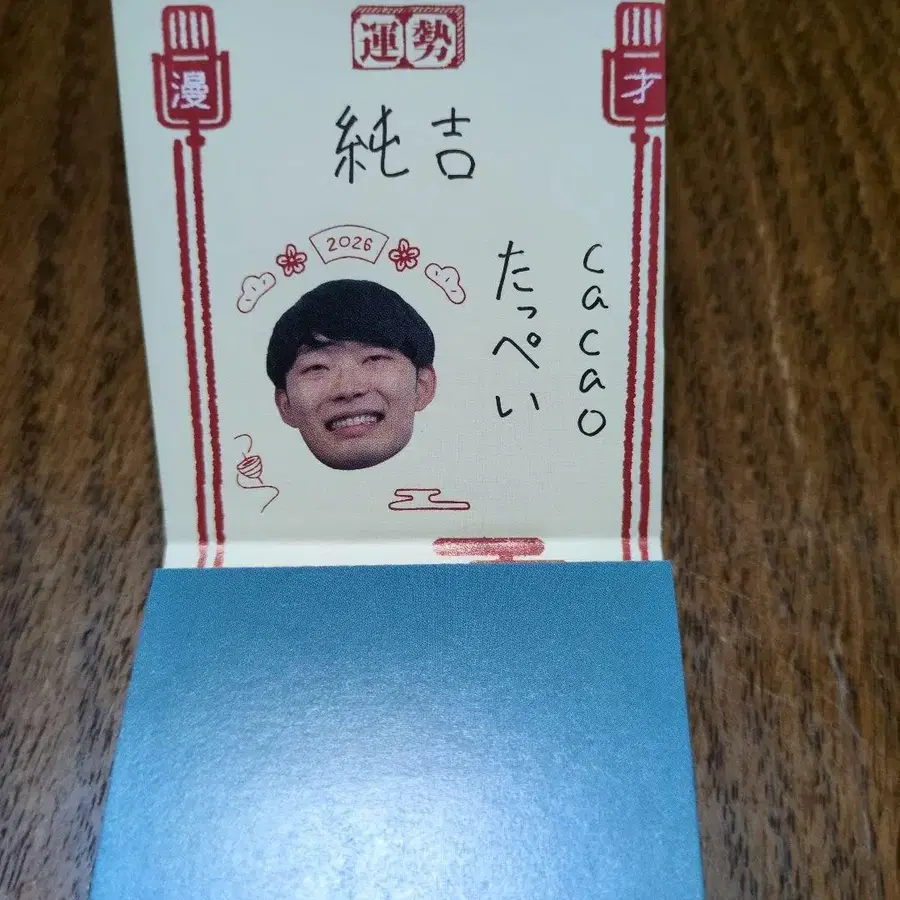 運勢
漫
才
純吉
2026
cacao
たっぺい